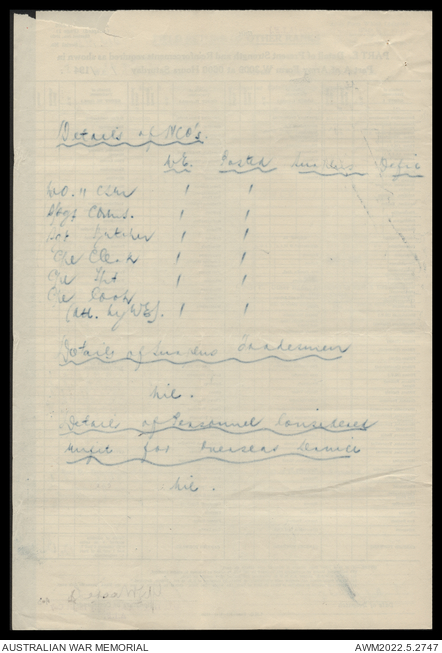 Details of NCO's.
W.E. Posted Surplus Defic
W.O. 11 CSM 1 1
1 1
Sgt Butcher 1 1
Cpl Clerk 1 1
Cpl 1 1
Cpl Cook
(Att. by WE). 1 1
Details of Surplus Tradesmen
Nil.
Detail of Personnel Considered
Unfit for Overseas Service
Nil.
AUSTRALIAN WAR MEMORIAL
AWM2022.5.2747